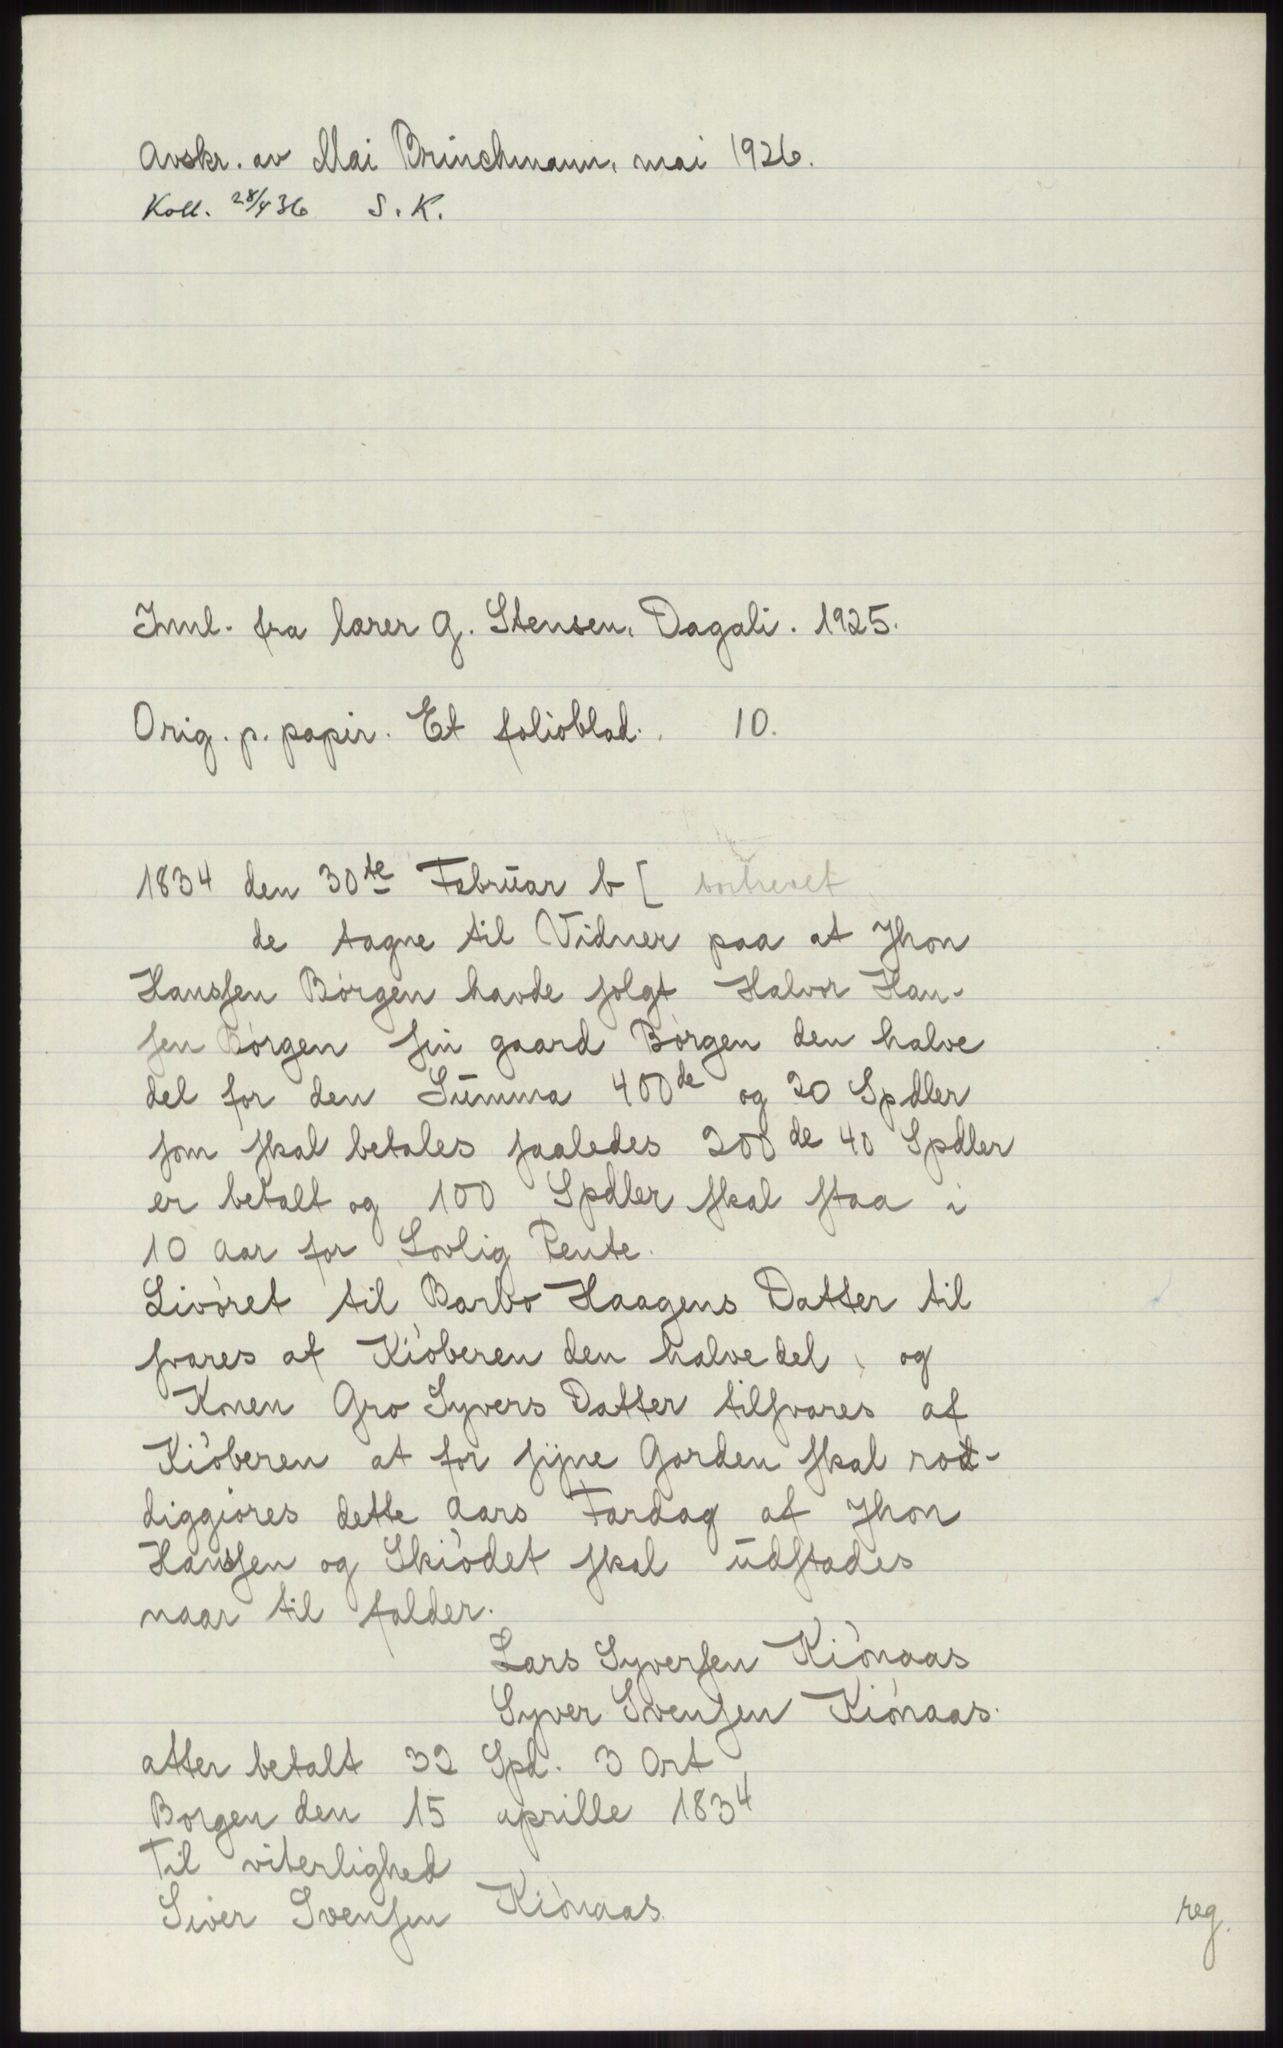 Avskr. av Mai Brinchmann, mai 1926.
Koll. 28/4 36 S. K.
Innl. fra lærer G. Stensen, Dagali. 1925.
Orig. p. papir. Et folioblad. 10.
1834 den 30te Februar b [ bortrevet
de tagne til Vidner paa at Jhon
Hansſen Børgen havde ſolgt Halvor Han-
ſen Børgen ſin gaard Børgen den halve
del for den Summa 400de og 20 Spdler
ſom ſkal betales ſaaledes 200de 40 Spdler
er betalt og 100 Spdler ſkal ſtaa i
10 aar for Lovlig Rente.
Livøret til Barbo Haagens Datter til
ſvares af Kiøberen den halve del, og
Konen Gro Syvers Datter tilſvares af
Kiøberen at for ſijne Garden ſkal rod-
diggiores dette Aars Fardag af Jhon
Hansſen og Skiødet ſkal udſtades
naar til falder.
Lars Syverſen Kiønaas
Syver Svenſen Kiønaas.
atter betalt 32 Spd. 3 Ort
Borgen den 15 aprille 1834
Til viterlighed
Siver Svenſen Kiønaas
reg.